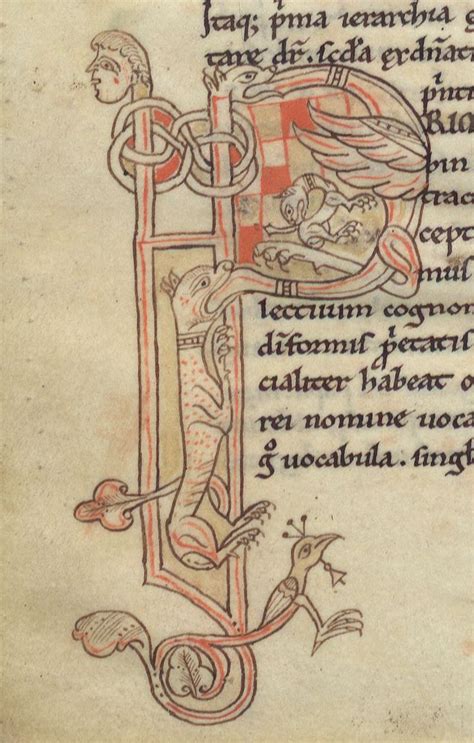 Itaq; p̄ma ierarchia g
tare dr̄. scďa exdn̄ati
p̄nti
RIO
bin
trac
cept
mus
lectiuum cognon
diformis p̄etatis
cialiter habeat o
rei nomine uoca
g̊ uocabula. singl